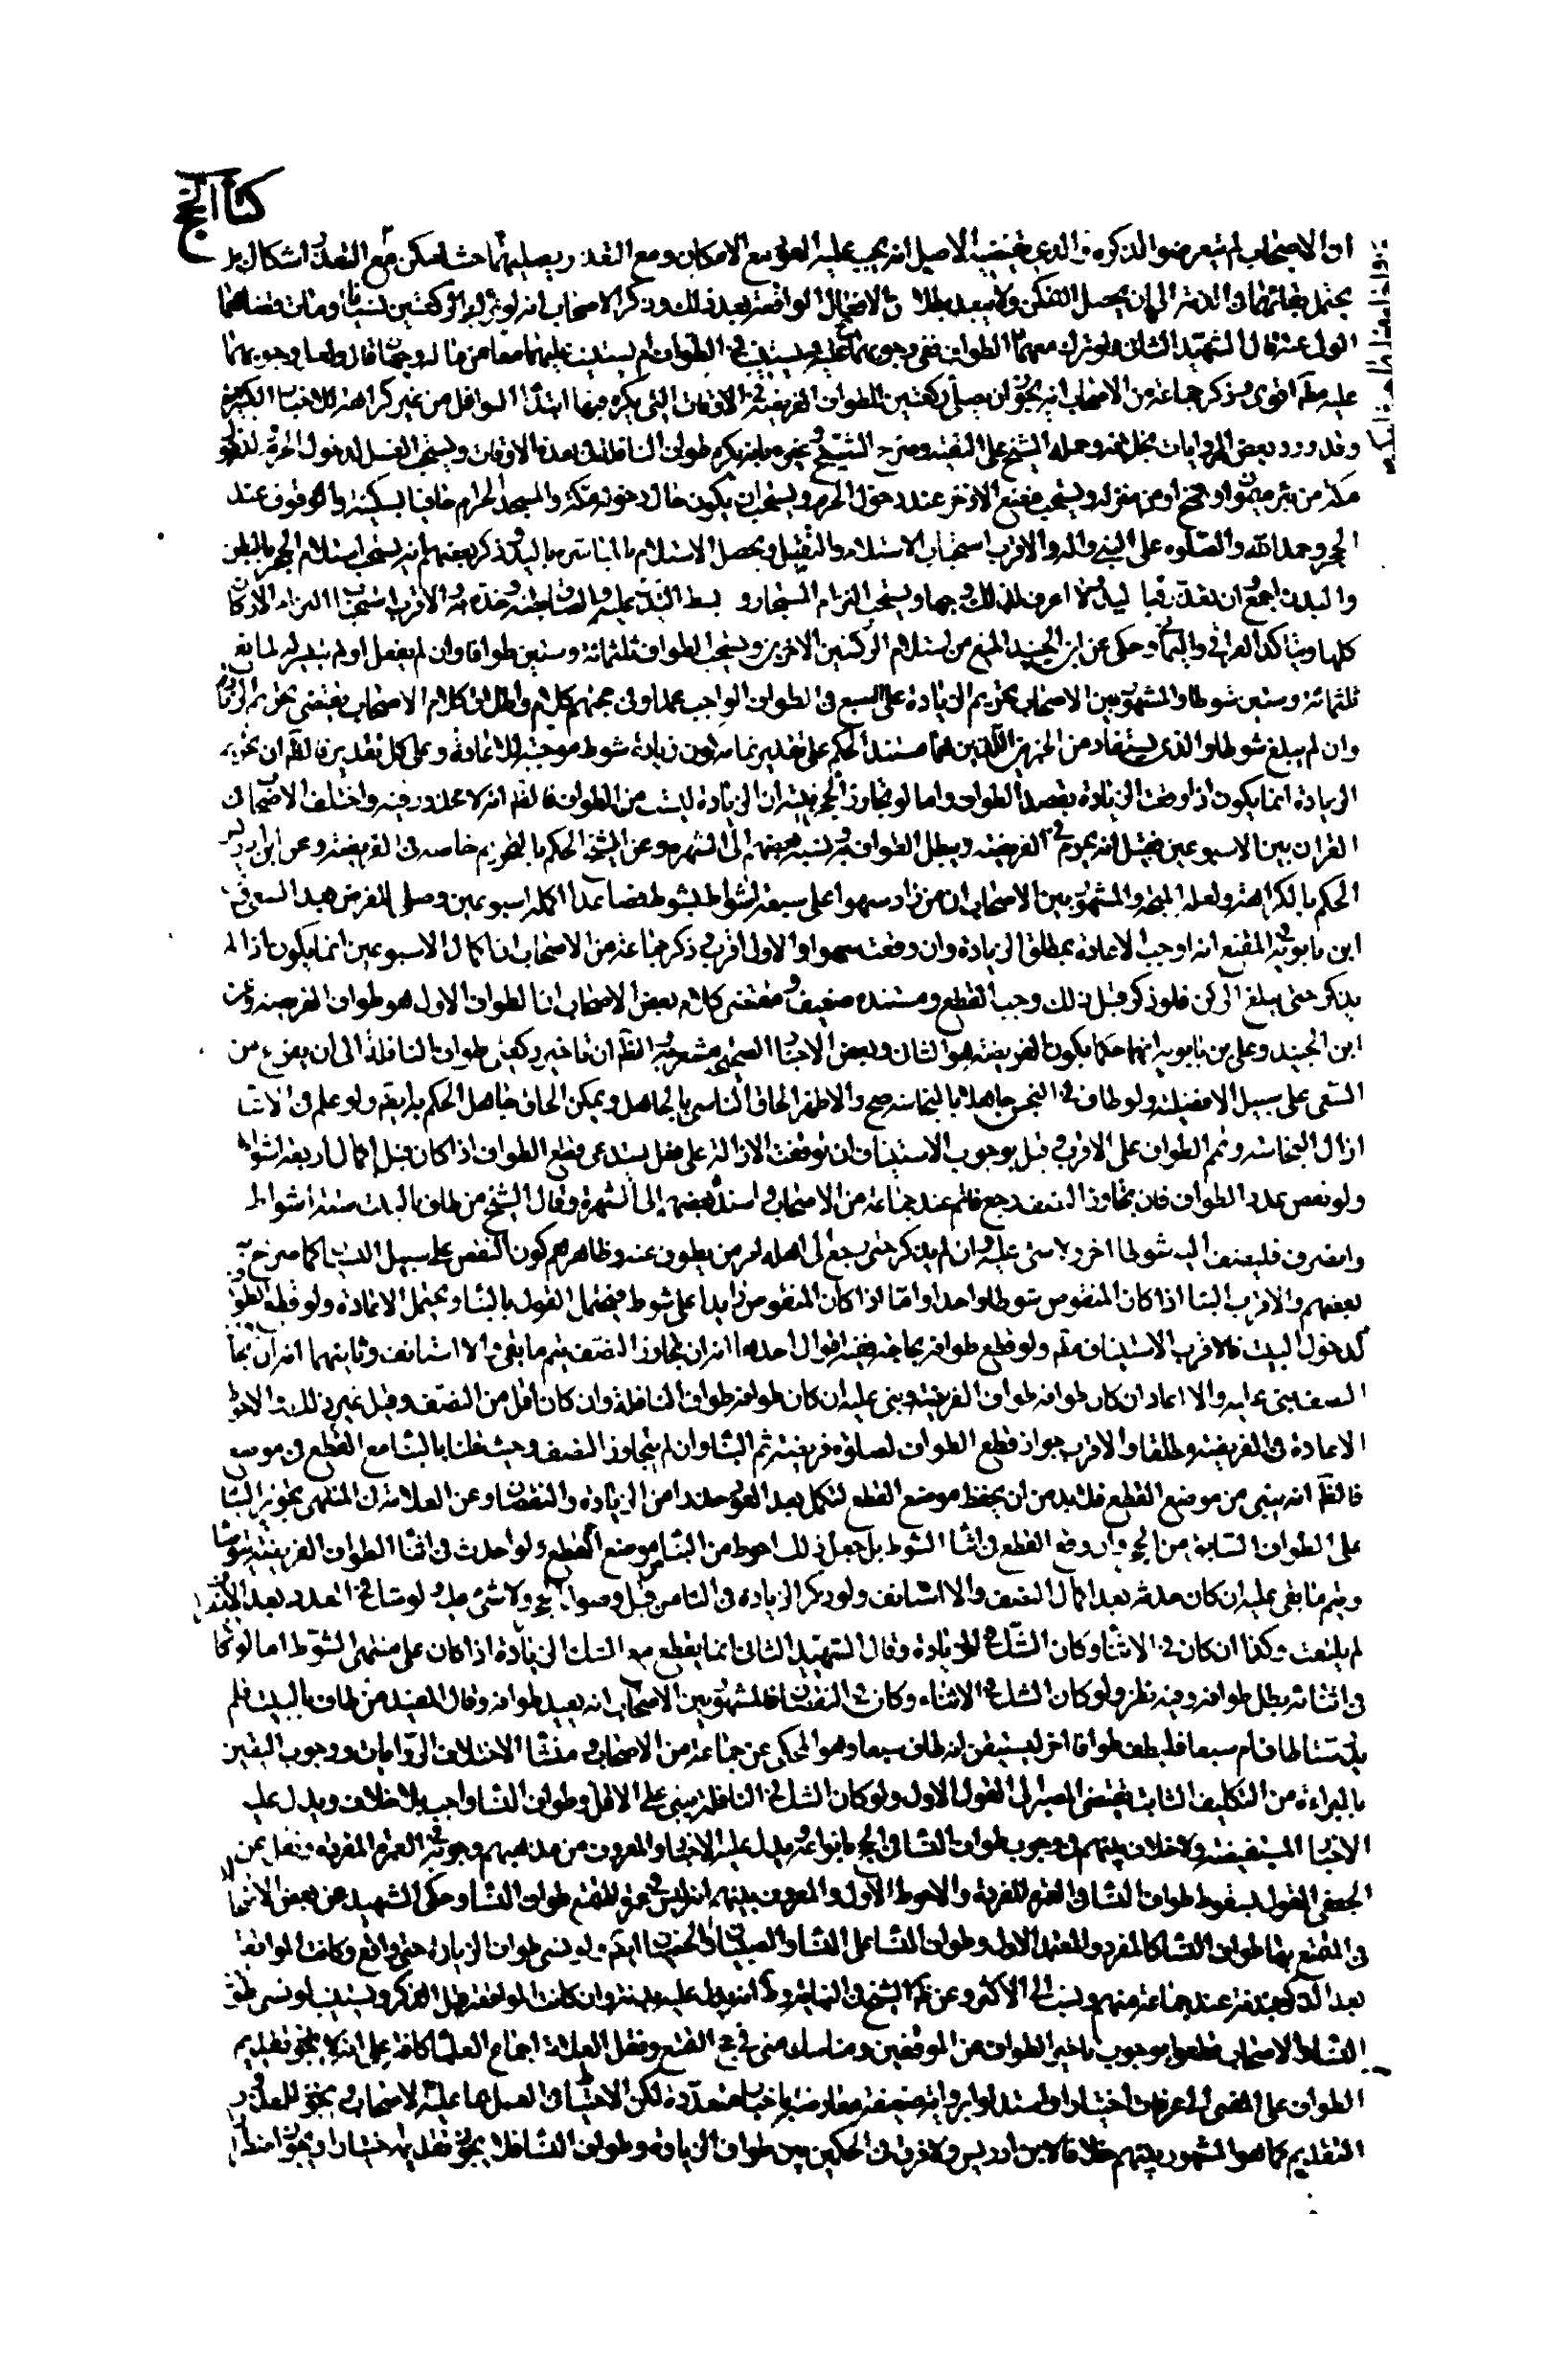 كتاب الحج
ان الاصحاب لم يتعرضوا لذكره والذي يقتضيه الاصل انه يجب عليه العود مع الامكان ومع التعذر يصليهما حيث امكن ومع التعذر اشكال
يحتمل بقائهما في الذمة الى ان يحصل التمكن ولا يبعد بطلان الافعال الواقعة بعد ذلك وذكر الاصحاب انه لو ترك الركعتين نسيانا ومات قضاهما
الولي عنه قال الشهيد الثاني ولو ترك معهما الطواف ففي وجوبهما عليه ويستنيب في الطواف ام يستنيب عليهما معا من ماله وجهان ولعل وجوبهما
عليه مطلقا اقوى وذكر جماعة من الاصحاب انه يجوز ان يصلي ركعتين للطواف الفريضة في الاوقات التي يكره فيها ابتداء النوافل من غير كراهة للاخبار الكثيرة
وقد ورد بعض الروايات بخلافه وحمله الشيخ على التقية وصرح الشيخ وغيره بانه يكره طواف النافلة في هذه الاوقات ويستحب الغسل لدخول الحرم لدخول
مكة من بئر ميمون او فخ او من منزله ويستحب مضغ الاذخر عند دخول الحرم ويستحب ان يكون حال دخوله مكة والمسجد الحرام حافيا بسكينة والوقوف عند
الحجر وحمد الله والصلوة على النبي واله والاقرب استحباب الاستلام والتقبيل ويحصل الاستلام بالمباشرة باليد وذكر بعضهم انه يستحب استلام الحجر بالبطن
والبدن اجمع ان تعذر فباليد ولا اعرف لذلك وجها ويستحب التزام المستجار وبسط اليدين عليه والصاق بطنه وخده به والاقرب استحباب التزام الاركان
كلها ويتاكد العراقي واليماني وحكى عن ابن الجنيد المنع من استلام الركنين الاخرين ويستحب الطواف ثلثمائة وستين طوافا وان لم يفعل او لم يتيسر له لمانع
ثلثمائة وستين شوطا والمشهور بين الاصحاب تحريم الزيادة على السبع في الطواف الواجب عمدا وفي حجتهم كلام واطلاق كلام الاصحاب يقتضي تحريم الزيادة
وان لم يبلغ شوطا والذي يستفاد من الخبرين اللذين هما مستند الحكم على تقدير تمامه كون زيادة شوط موجبة للاعادة وعلى كل تقدير فالظاهر ان تحريم
الزيادة انما يكون اذا وقعت الزيادة بقصد الطواف واما لو تجاوز الحجر بنية ان الزيادة ليست من الطواف فالظاهر انه لا محذور فيه واختلف الاصحاب في
القران بين الاسبوعين فقيل انه يحرم في الفريضة ويبطل الطواف به ونسبه بعضهم الى الشهرة وعن الشيخ الحكم بالتحريم خاصة في الفريضة وعن ابن ادريس
الحكم بالكراهة ولعله المتجه والمشهور بين الاصحاب ان من زاد سهوا على سبعة اشواط بشوط فصاعدا اكمله اسبوعين وصلى للفرض قبل السعي وعن
ابن بابويه في المقنع انه اوجب الاعادة بمطلق الزيادة وان وقعت سهوا والاول اقرب وذكر جماعة من الاصحاب ان اكمال الاسبوعين انما يكون اذا لم
يذكر حتى يبلغ الركن فلو ذكر قبل ذلك وجب القطع ومستنده ضعيف ومقتضى كلام بعض الاصحاب ان الطواف الاول هو طواف الفريضة وعن
ابن الجنيد وعلي بن بابويه انهما حكما بكون الفريضة هو الثاني وبعض الاخبار الصحيحة مشعر به والظاهر ان تاخير ركعتي طواف النافلة الى ان يفرغ من
السعي على سبيل الافضلية ولو طاف في النجس جاهلا بالنجاسة صح والاظهر الحاق الناسي بالجاهل ويمكن الحاق جاهل الحكم به ايضا ولو علم في الاثناء
ازال النجاسة وتمم الطواف على الاقرب وقيل بوجوب الاستيناف ان توقفت الازالة على فعل يستدعي قطع الطواف اذا كان قبل اكمال اربعة اشواط
ولو نقص عدد الطواف فان تجاوز النصف رجع فاتم عند جماعة من الاصحاب واسنده بعضهم الى الشهرة وقال الشيخ من طاف بالبيت ستة اشواط
وانصرف فليضف اليه شوطا اخر ولا شئ عليه وان لم يذكر حتى يرجع الى اهله امر من يطوف عنه وظاهرهم كون النقص على سبيل النسيان كما صرح به
بعضهم والاقرب البناء اذا كان المنقوص شوطا واحدا واما اذا كان المنقوص زايدا على شوط فيحتمل القول بالبناء ويحتمل الاعادة ولو قطع الطواف
لدخول البيت فالاقرب الاستيناف مطلقا ولو قطع طوافه لحاجة ففيه اقوال احدها انه ان تجاوز النصف يتم ما بقي والا استانف وثانيهما انه ان تجاوز
النصف بنى عليه والا اعاد ان كان طوافه طواف الفريضة وبنى عليه ان كان طوافه طواف النافلة وان كان اقل من النصف وقيل غير ذلك والاحوط
الاعادة في الفريضة مطلقا والاقرب جواز قطع الطواف لصلوة فريضة ثم البناء وان لم يتجاوز النصف وحيث قلنا بالبناء مع القطع في موضع
فالظاهر انه يبني من موضع القطع فلا بد من ان يحفظ موضع القطع لتكمل بعد العود حذرا من الزيادة والنقصان وعن العلامة في المنتهى تجويز البناء
على الطواف السابق من الحجر وان وقع القطع في اثناء الشوط بل جعل ذلك احوط من البناء من موضع القطع ولو احدث في اثناء الطواف الفريضة يتوضا
ويتم ما بقي عليه ان كان حدثه بعد اكمال النصف والا استانف ولو ذكر الزيادة في الثامن قبل وصوله الحجر ولا شئ عليه ولو شك في العدد بعد الانصراف
لم يلتفت وكذا ان كان في الاثناء وكان الشك في الزيادة وقال الشهيد الثاني انما يقطع مع الشك في الزيادة اذا كان على منتهى الشوط اما لو كان
في اثنائه بطل طوافه وفيه نظر ولو كان الشك في الاثناء وكان في النقصان فالمشهور بين الاصحاب انه يعيد طوافه وقال المفيد من طاف بالبيت فلم
يدر ستا طاف ام سبعا فليطف طوافا اخر ليستيقن انه طاف سبعا وهو المحكي عن جماعة من الاصحاب ومنشأ الاختلاف الروايات ووجوب اليقين
بالبراءة من التكليف الثابت يقتضي المصير الى القول الاول ولو كان الشك في النافلة يبني على الاقل وطواف النساء واجب بلا خلاف ويدل عليه
الاخبار المستفيضة ولا خلاف بينهم في وجوب طواف النساء في الحج بانواعه ويدل عليه الاخبار والمعروف من مذهبهم وجوبه في العمرة المفردة ونقل عن
الجعفي القول بسقوط طواف النساء في العمرة المفردة والاحوط الاول والمعروف بينهم انه ليس في عمرة التمتع طواف النساء وحكى الشهيد عن بعض الاصحاب
في المتمتع بها طواف النساء كالمفردة والمعتمد الاول وطواف النساء على النساء والصبيان والخصيان ايضا ولو نسى طواف الزيارة حتى واقع وكانت المواقعة
بعد الذكر فبدنة عند جماعة منهم ونسب الى الاكثر وعن الشيخ في النهاية وط انه يدل عليه بدنة وان كانت المواقعة قبل الذكر ويستنيب لو نسى طواف
النساء والاصحاب قطعوا بوجوب تاخير الطواف عن الموقفين ومناسك منى في حج التمتع ونقل العلامة اجماع العلماء كافة على انه لا يجوز تقديم
الطواف على المضي الى عرفات اختيارا واستندوا برواية ضعيفة معارضة باخبار متعددة لكن الاحتياط في العمل بما عليه الاصحاب ويجوز للمعذور
التقديم كما هو المشهور بينهم خلافا لابن ادريس ولا فرق في الحكمين بين طواف الزيارة وطواف النساء فلا يجوز تقديمه اختيارا ويجوز اضطرارا